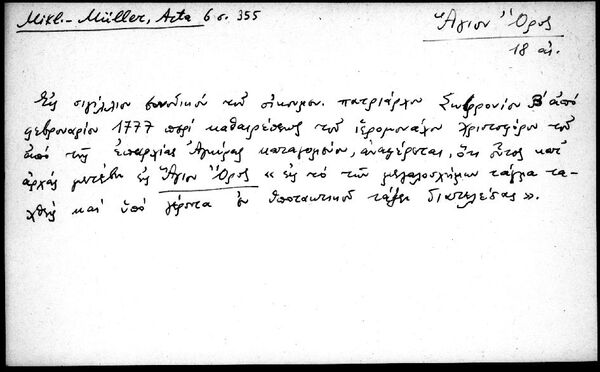 Mikl.- Müller, Acta 6 σ. 355
Ἅγιον Ὄρος
18 αἰ.
Εἰς σιγίλλιον συνοδικόν τοῦ οἰκουμεν. πατριάρχου Σωφρονίου Β' ἀπό
φεβρουαρίου 1777 περί καθαιρέσεως τοῦ ἱερομονάχου Χριστοφόρου τοῦ
ἀπό τῆς ἐπαρχίας Ἀγκύρας καταγομένου, ἀναφέρεται, ὅτι οὗτος κατ'
ἀρχάς μετέβη εἰς Ἅγιον Ὄρος « εἰς τό τῶν μεγαλοσχήμων τάγμα τα-
χθείς καί ὑπό γέροντα ἐν ὑποτακτικοῦ τάξει διατελέσας ».